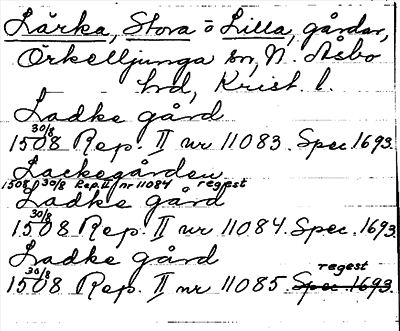 Lärka, Stora o Lilla, gårdar,
Örkelljunga sn, N. Åsbo
hrd, Krist. l.
Ladke gård
1508 30/8 Rep. II nr 11083. Spec 1693.
Lackegården
1508 30/8 Rep. II nr 11084 regest
Ladke gård
1508 30/8 Rep. II nr 11084. Spec. 1693.
Ladke gård
regest
1508 30/8 Rep. II nr 11085 Spec. 1693.